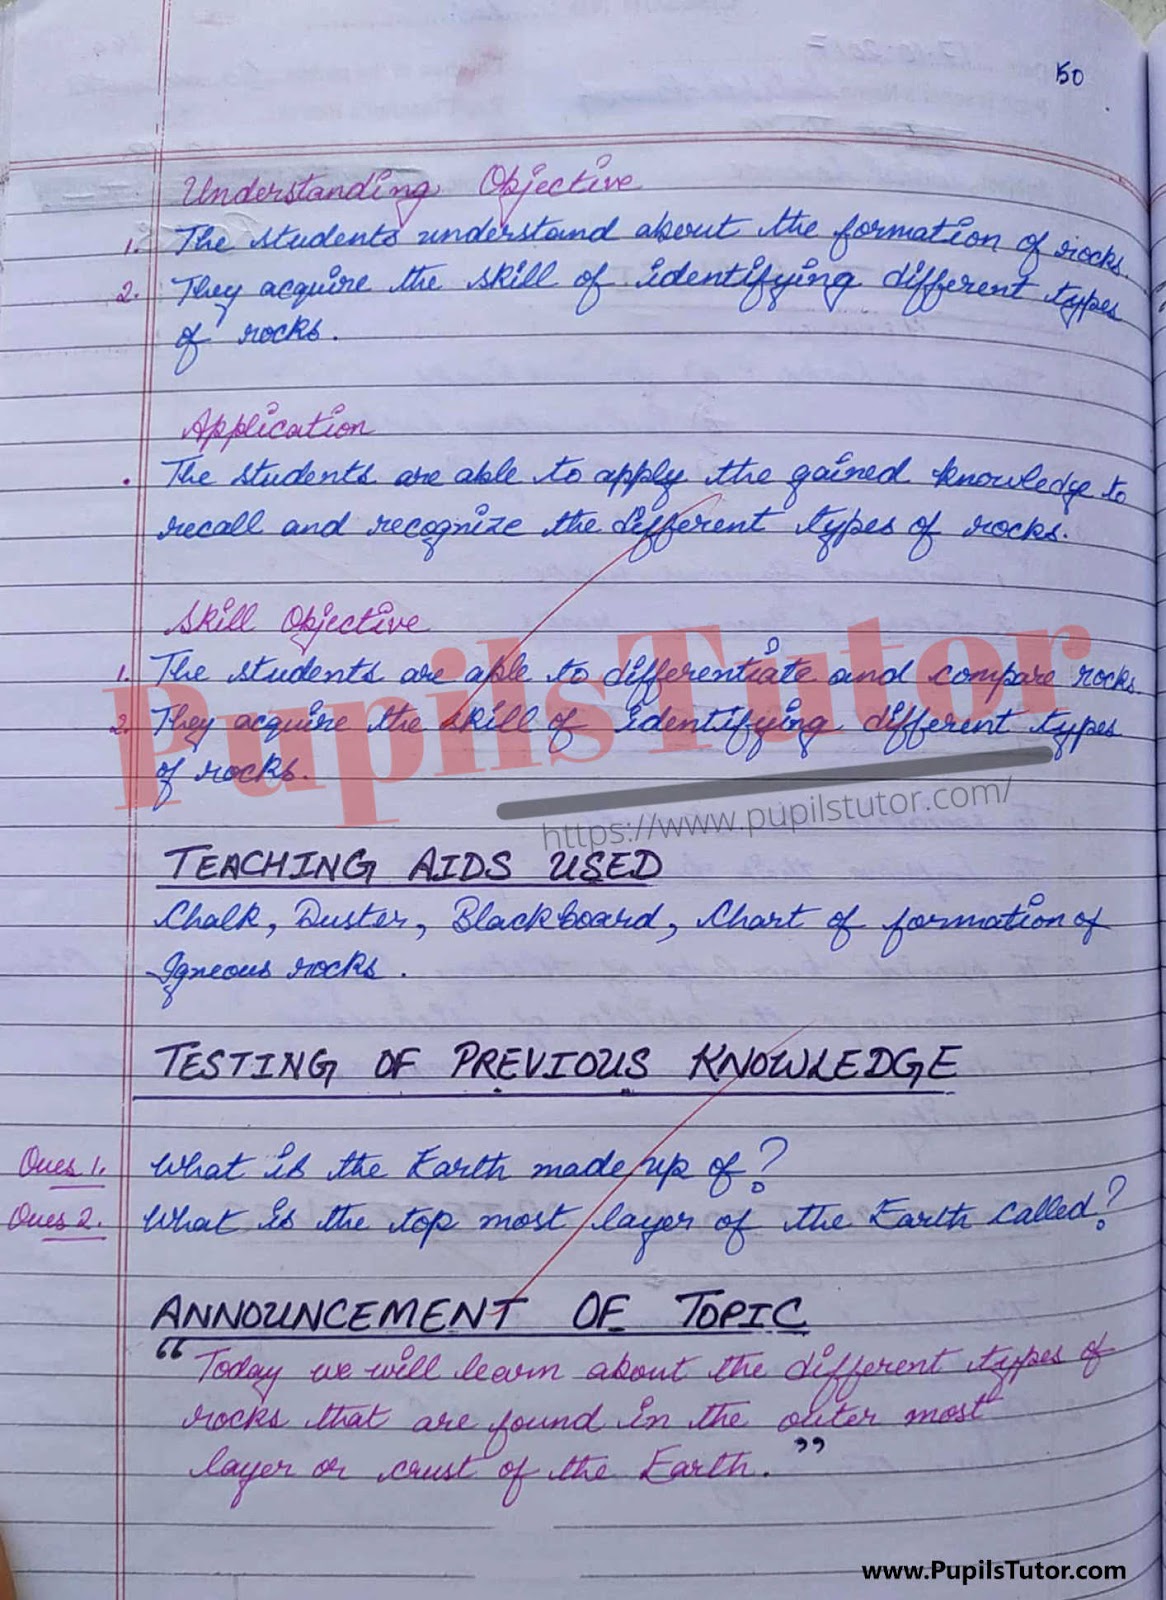 150
Understanding Objective
1. The students understand about the formation of rocks.
2. They acquire the skill of identifying different types
of rocks.
Application
. The students are able to apply the gained knowledge to
recall and recognize the different types of rocks.
Skill Objective
1. The students are able to differentiate and compare rocks.
2. They acquire the skill of identifying different types
of rocks.
PupilsTutor
https://www.pupilstutor.com/
TEACHING AIDS USED
Chalk, Duster, Blackboard, Chart of formation of
Igneous rocks.
TESTING OF PREVIOUS KNOWLEDGE
Ques 1. What is the Earth made up of?
Ques 2. What is the top most layer of the Earth called?
ANNOUNCEMENT OF TOPIC
“Today we will learn about the different types of
rocks that are found in the outer most
layer or crust of the Earth.”
www.PupilsTutor.com